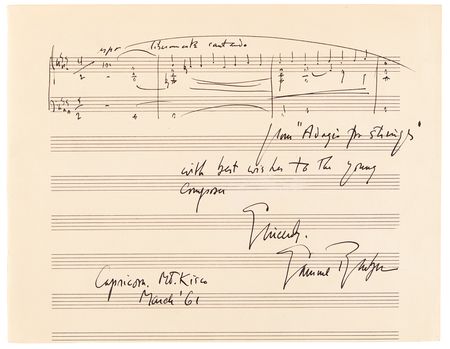 espr liberamente cantando
4
2
from "Adagio for Strings"
with best wishes to the young
Composer
Sincerely,
Samuel Barber
Capricorn, Mt. Kisco
March '61